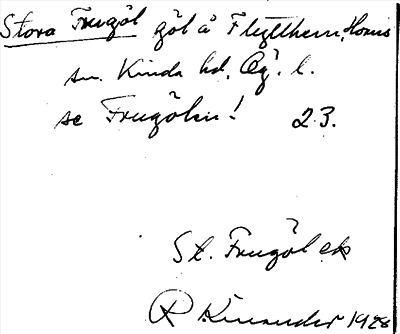 Stora Frugöl göl å Flytthem, Horns
sn. Kinda hd, Ög. l.
se Frugölen! 23.
St. Frugöl ek
R Kinander 1928